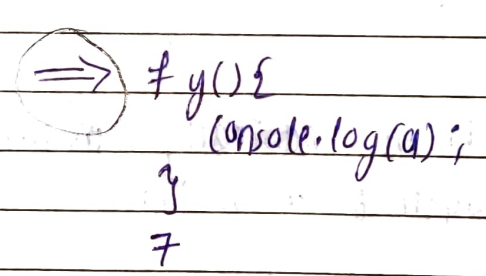 ⇒ f y(){
console.log(a);
}
7